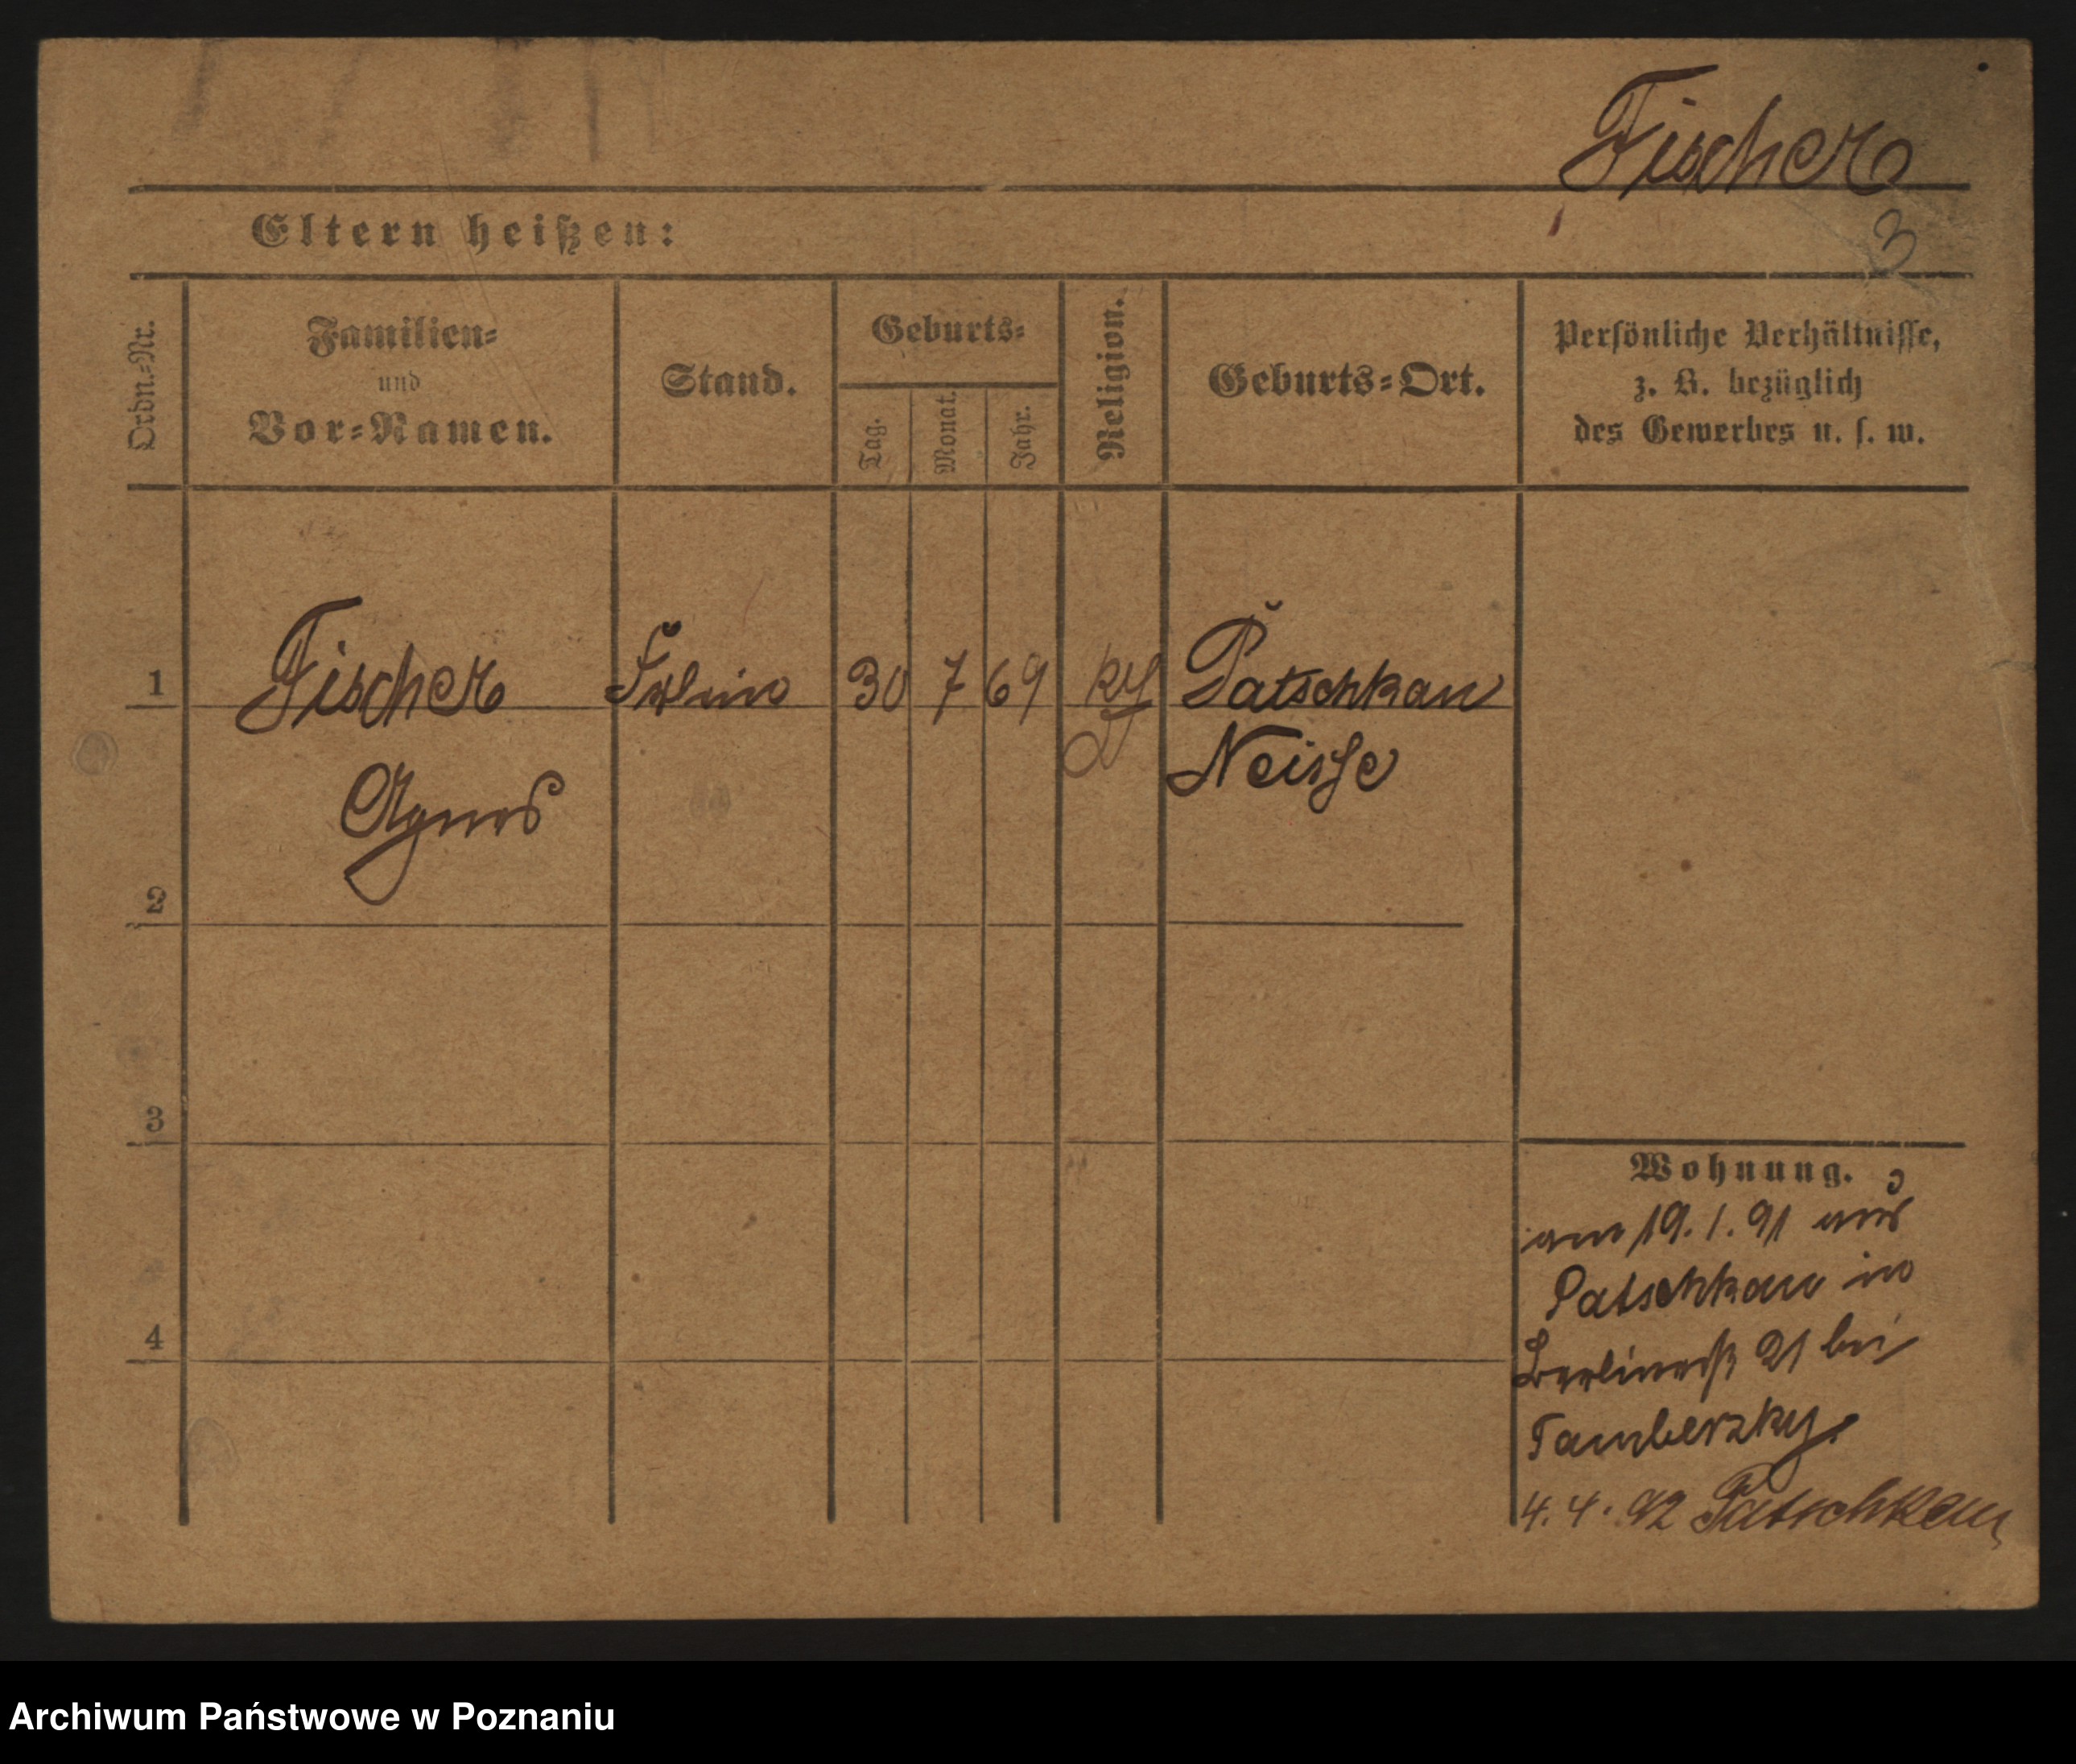 Fischer
3
Eltern heißen:
Ordn.-Nr.
Familien-
und
Vor-Namen.
Stand.
Geburts-
Tag.
Monat.
Jahr.
Religion.
Geburts-Ort.
Persönliche Verhältnisse,
z. B. bezüglich
des Gewerbes u. s. w.
1 Fischer 30 7 69 Patschkau
Agnes Neisse
2
3
4
Wohnung.
am 19.1.91 aus
Patschkau in
Berlinerstr 21 bei
Tamberzky.
4.4.92 Patschkau
Archiwum Państwowe w Poznaniu